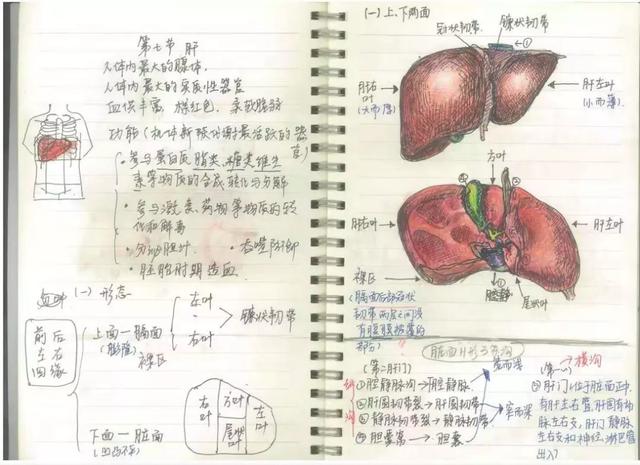 第七节 肝
人体内最大的腺体.
人体内最大的实质性器官
血供丰富 棕红色. 柔软脆弱
功能(机体新陈代谢最活跃的器官)
·参与蛋白质 脂类、糖类维生
素等物质的合成、转化与分解
·参与激素、药物等物质的转
化和解毒
·分泌胆汁. ·吞噬防御
·胚胎时期造血.
(一)形态
前后
左右
四缘
上面—膈面
(膨隆)
裸区
左叶
右叶
镰状韧带
下面—脏面
(凹凸不平)
右叶
方叶
尾状叶
左叶
(一)上、下两面
冠状韧带
镰状韧带
①
肝右叶
(大而厚)
肝左叶
(小而薄)
方叶
肝右叶
肝左叶
裸区
尾状叶
(膈面后部冠状
韧带两层之间没
有腹膜被覆的
部分)
脏面H形三条沟
(第二肝门)
①腔静脉沟→下腔静脉
②肝圆韧带裂→肝圆韧带
③静脉韧带裂→静脉韧带
④胆囊窝→胆囊
宽而浅
窄而深
横沟
(第一)
肝门:位于脏面正中.
有肝左右管,肝固有动
脉左右支,肝门静脉
左右支和神经、淋巴管
出入